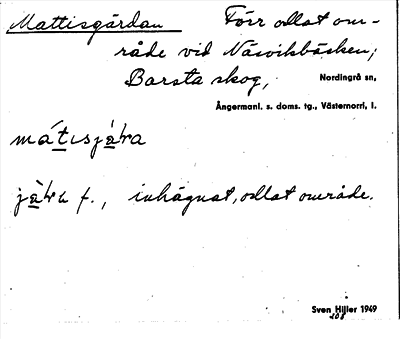 Mattisgärdan Förr odlat om-
råde vid Näsviksbäcken;
Barsta skog, Nordingrå sn,
Ångermanl. s. doms. tg., Västernorrl. l.
inhägnat, odlat område.
Sven Hiller 1949
208